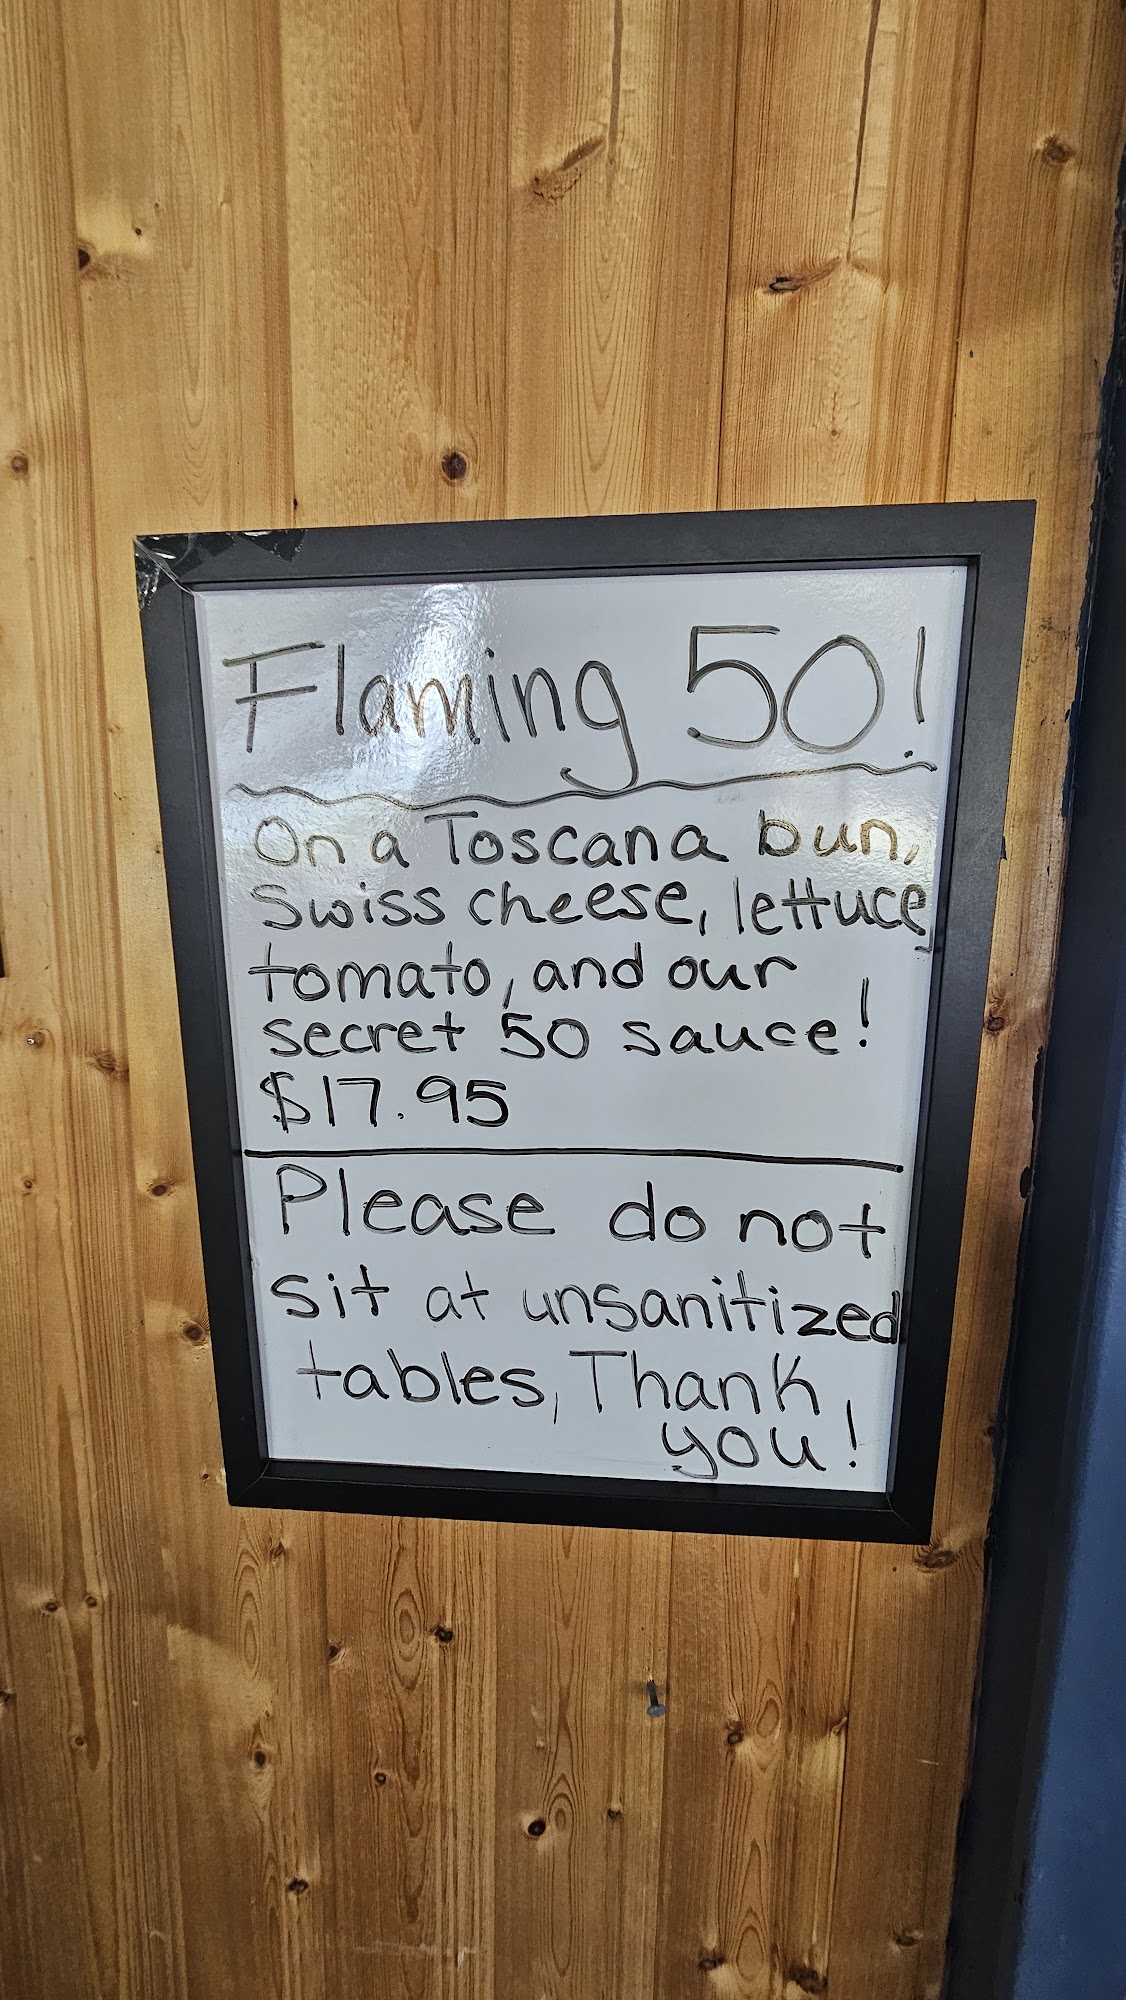 Flaming 50!
On a Toscana bun,
Swiss cheese, lettuce,
tomato, and our
secret 50 sauce!
$17.95
Please do not
sit at unsanitized
tables, Thank
you!